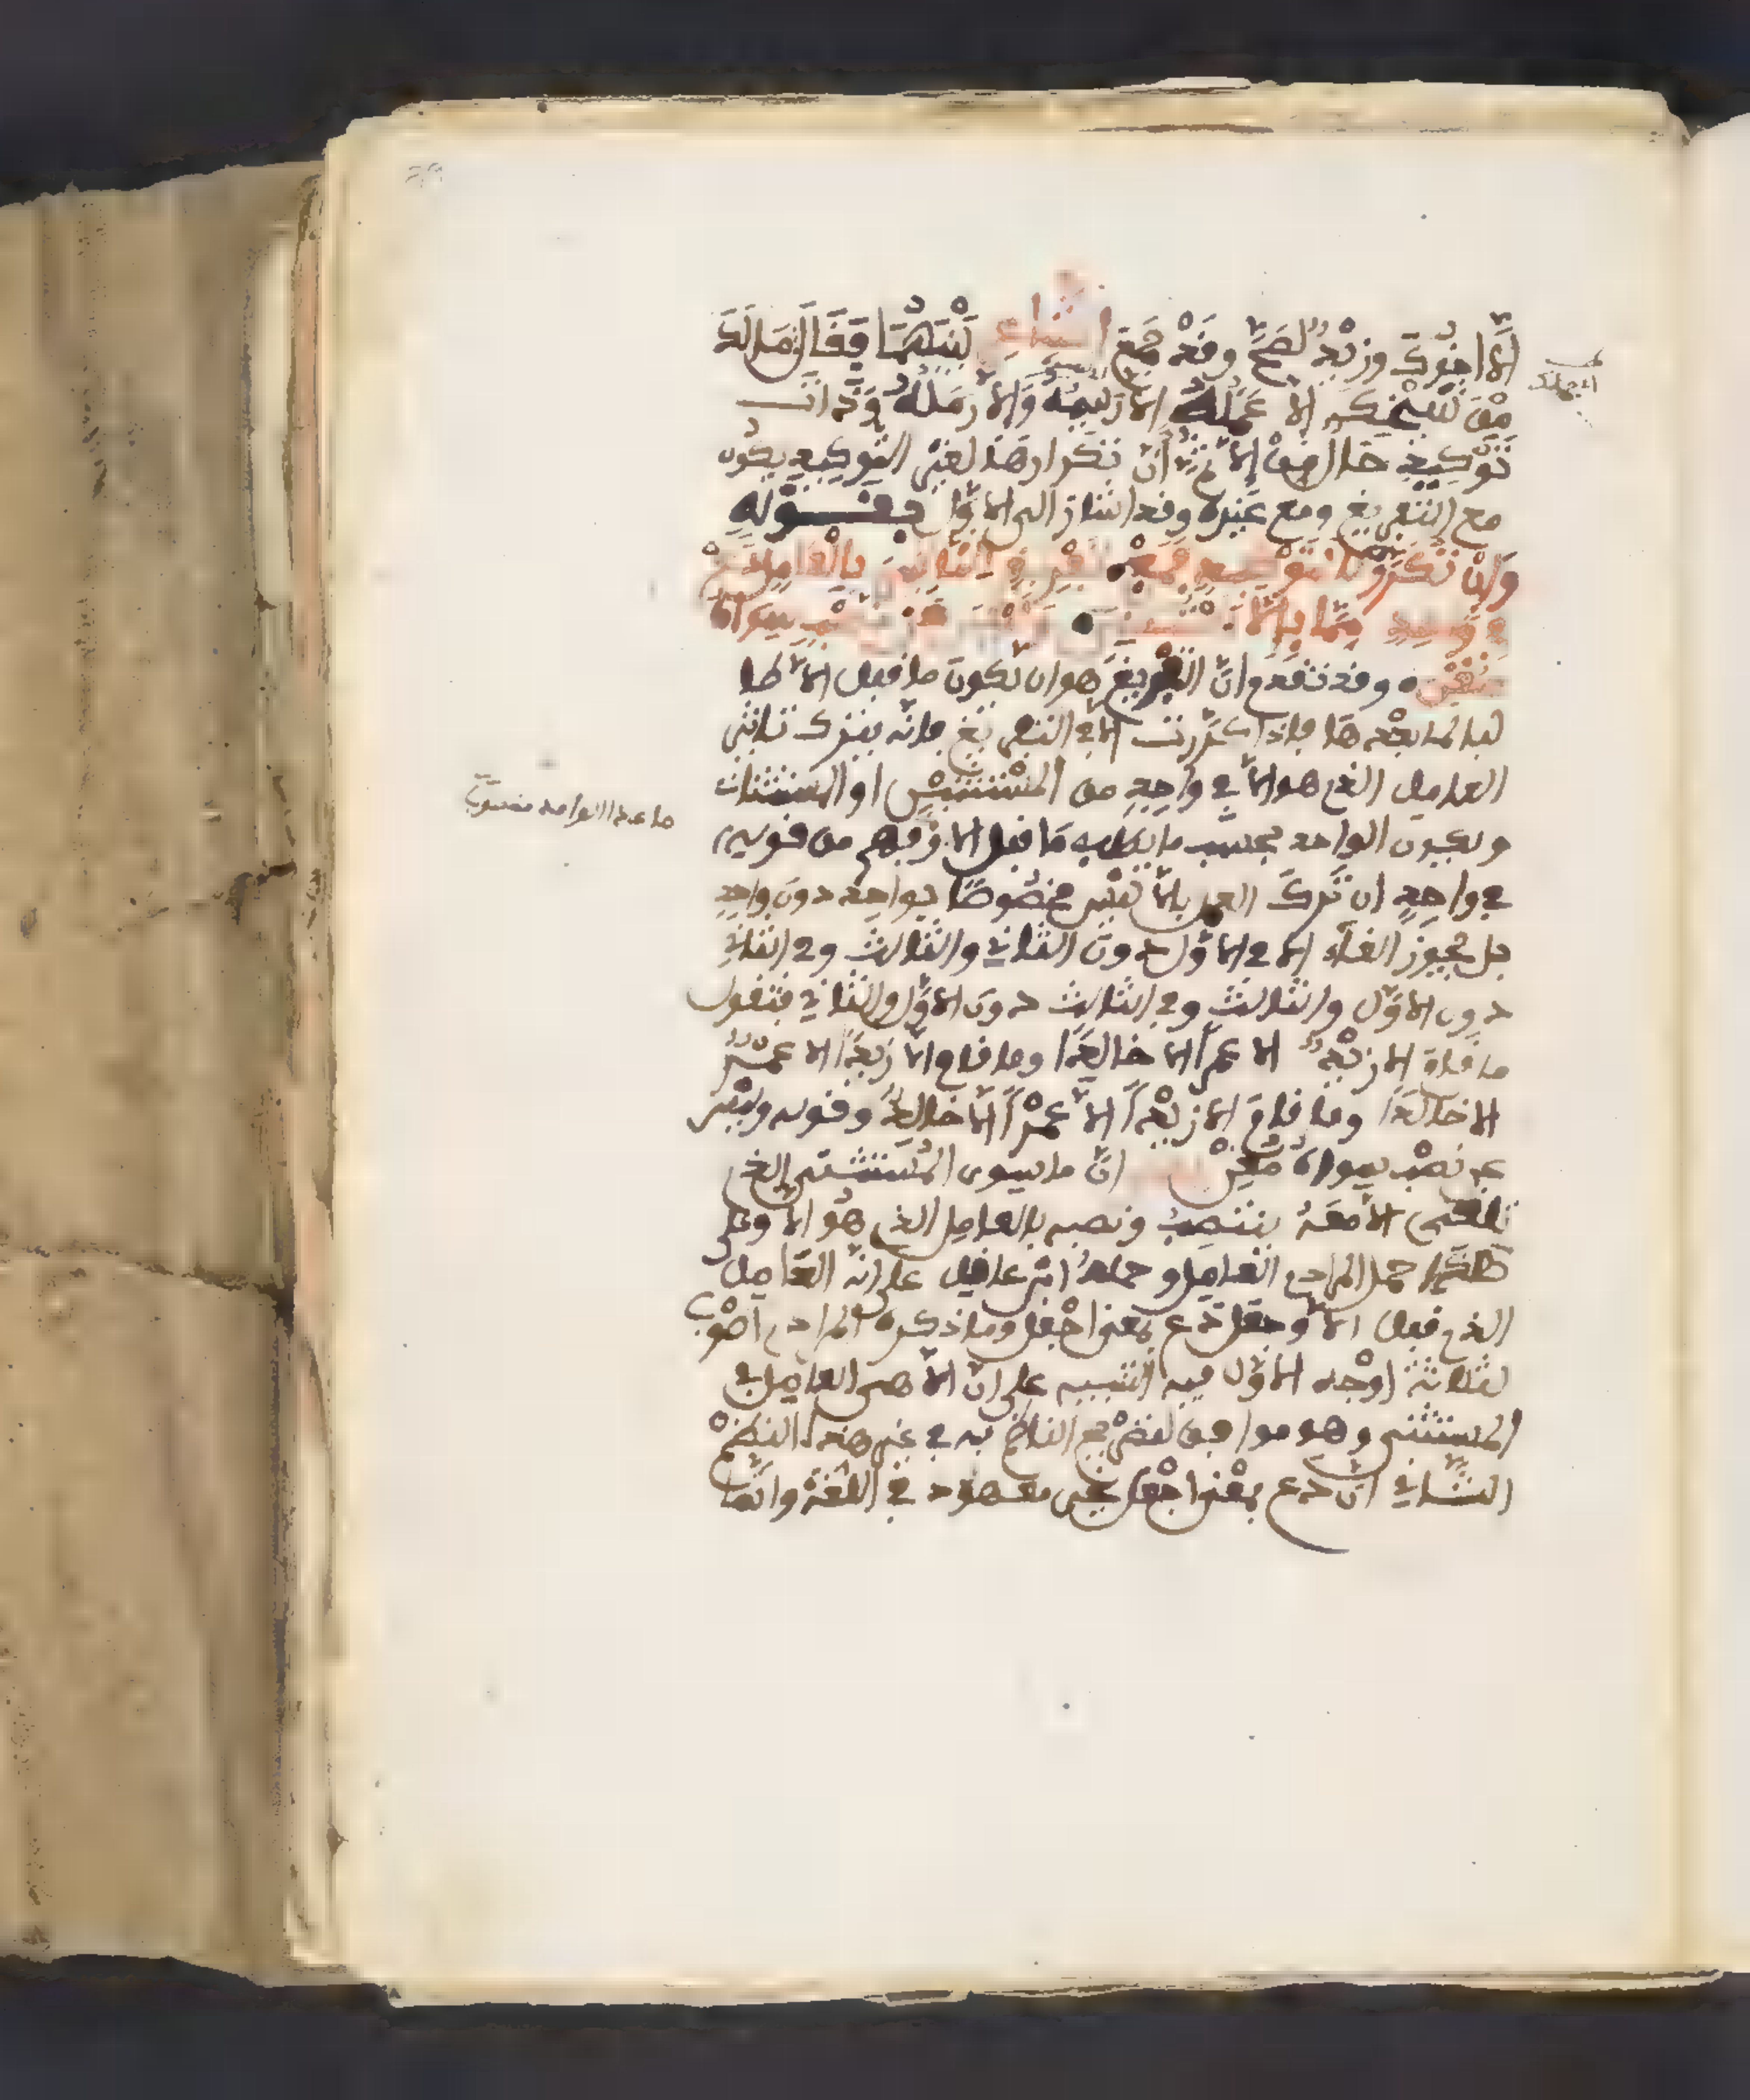 الا اخوك وزيد لصح وقد جمع الشاعر بينهما فقال مالك
من شيخك الا عمله الا رسيمه والا رمله وذا
توكيد خال من الا ثم ان تكرارها لغير التوكيد يكون
مع التفريغ ومع غيره وقد اشار الى الاول بقوله
وان تكرر لا لتوكيد فمع تفريغ التاثير بالعامل دع
في واحد مما بالا استثني وليس عن نصب سواه
مغني وقد تقدم ان التفريغ هو ان يكون ما قبل الا طا
لبا لما بعدها فاذا كررت الا في التفريغ فانه يترك تاثير
العامل الذي هو الا في واحد من المستثنيين او المستثنات
ويكون الواحد بحسب ما يطلبه ما قبل الا وفهم من قوله
في واحد ان ترك العمل بالا ليس مخصوصا بواحد دون واحد
بل يجوز الغاء الا في الاول دون الثاني والثالث وفي الثاني
دون الاول والثالث وفي الثالث دون الاول والثاني فتقول
ما قام الا زيد الا عمرا الا خالدا وما قام الا زيدا الا عمرو
الا خالدا وما قام الا زيدا الا عمرا الا خالد وقوله وليس
عن نصب سواه مغن ان ما سوى المستثنى الذي
تلغى الا معه ينتصب ونصبه بالعامل الذي هو الا وعلى
هذا حمل المرادي العامل وحمله ابن عقيل على انه العامل
الذي قبل الا وجعل دع بمعنى اجعل وما ذكره المرادي اصوب
لثلاثة اوجه الاول فيه التنبيه على ان الا هي العامل في
المستثنى وهو موافق لتصريح الناظم به في غير هذا النظم
الثاني ان دع بمعنى اجعل غير معهود في اللغة وانما
ما عدا الواحد منصوب